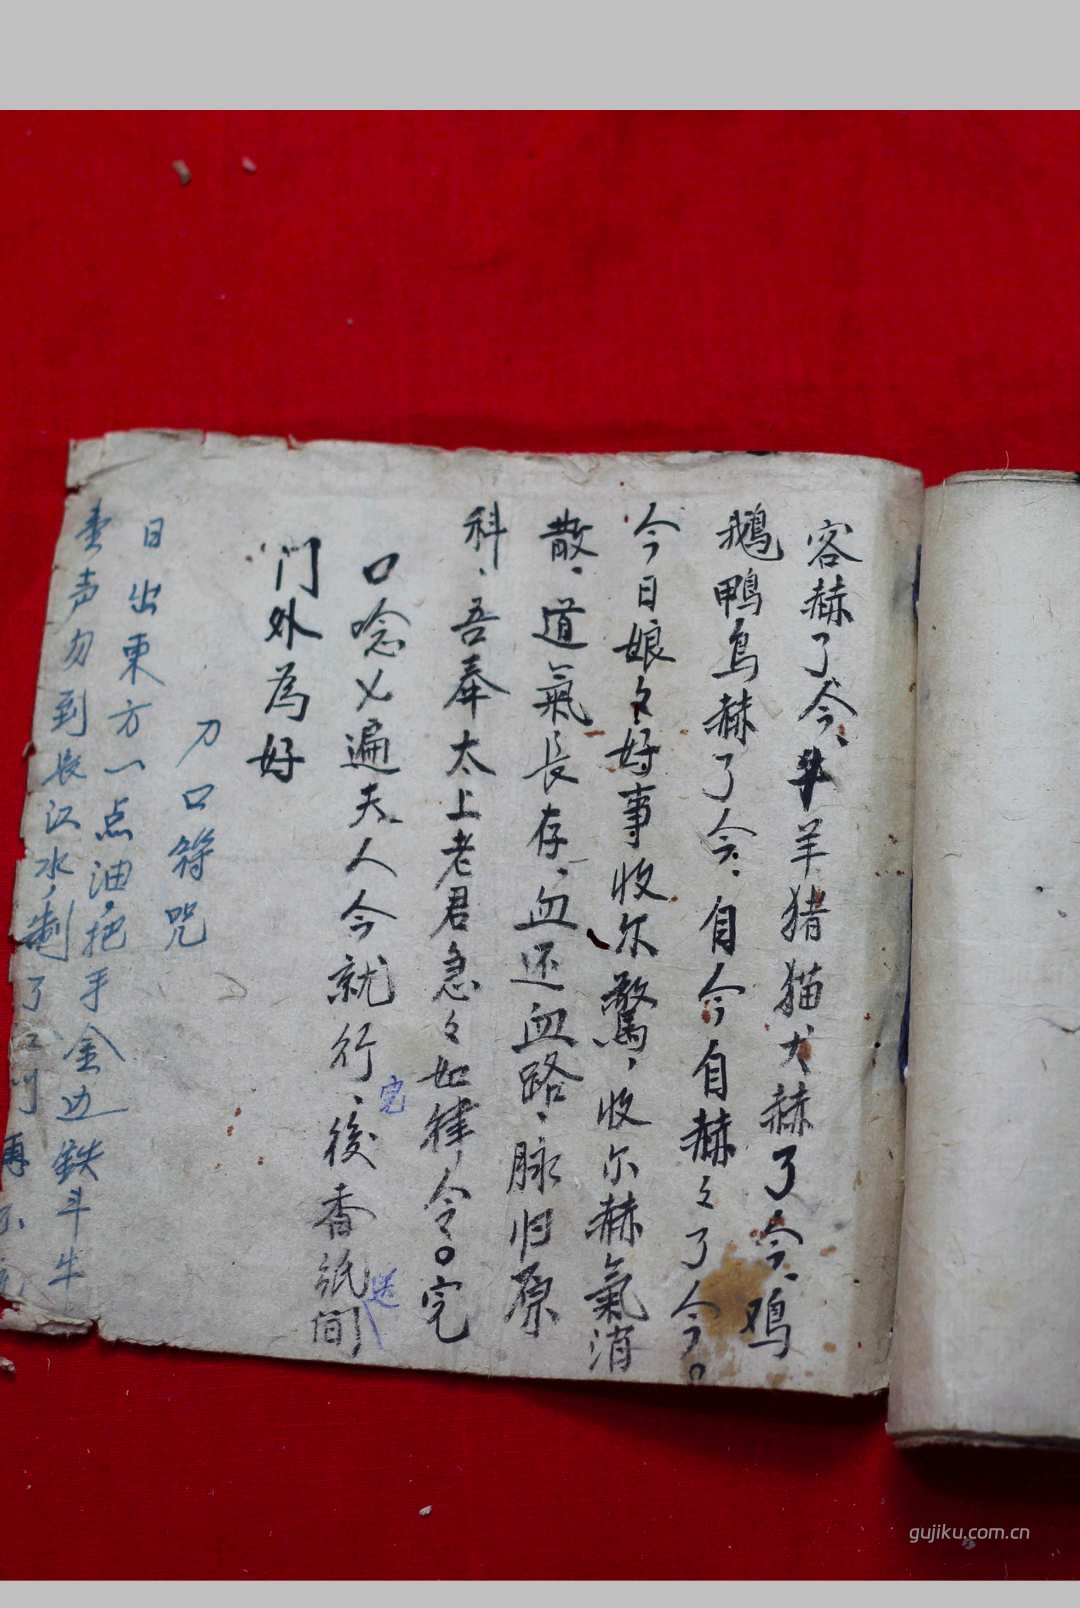 容赫了今、牛羊猪猫犬赫了今、鸡
鹅鸭鸟赫了今、自今自赫々了今。
今日娘々好事收尔驚,收尔赫氣消
散、道氣長存、血还血路、脉归原
科、吾奉太上老君急々如律令。完
口唸乂遍夫人今就行、後香纸
完
送
门外為好
刀口符咒
日出東方一点油,把手金边鉄斗牛
声勿到長江水,制了口
gujiku.com.cn